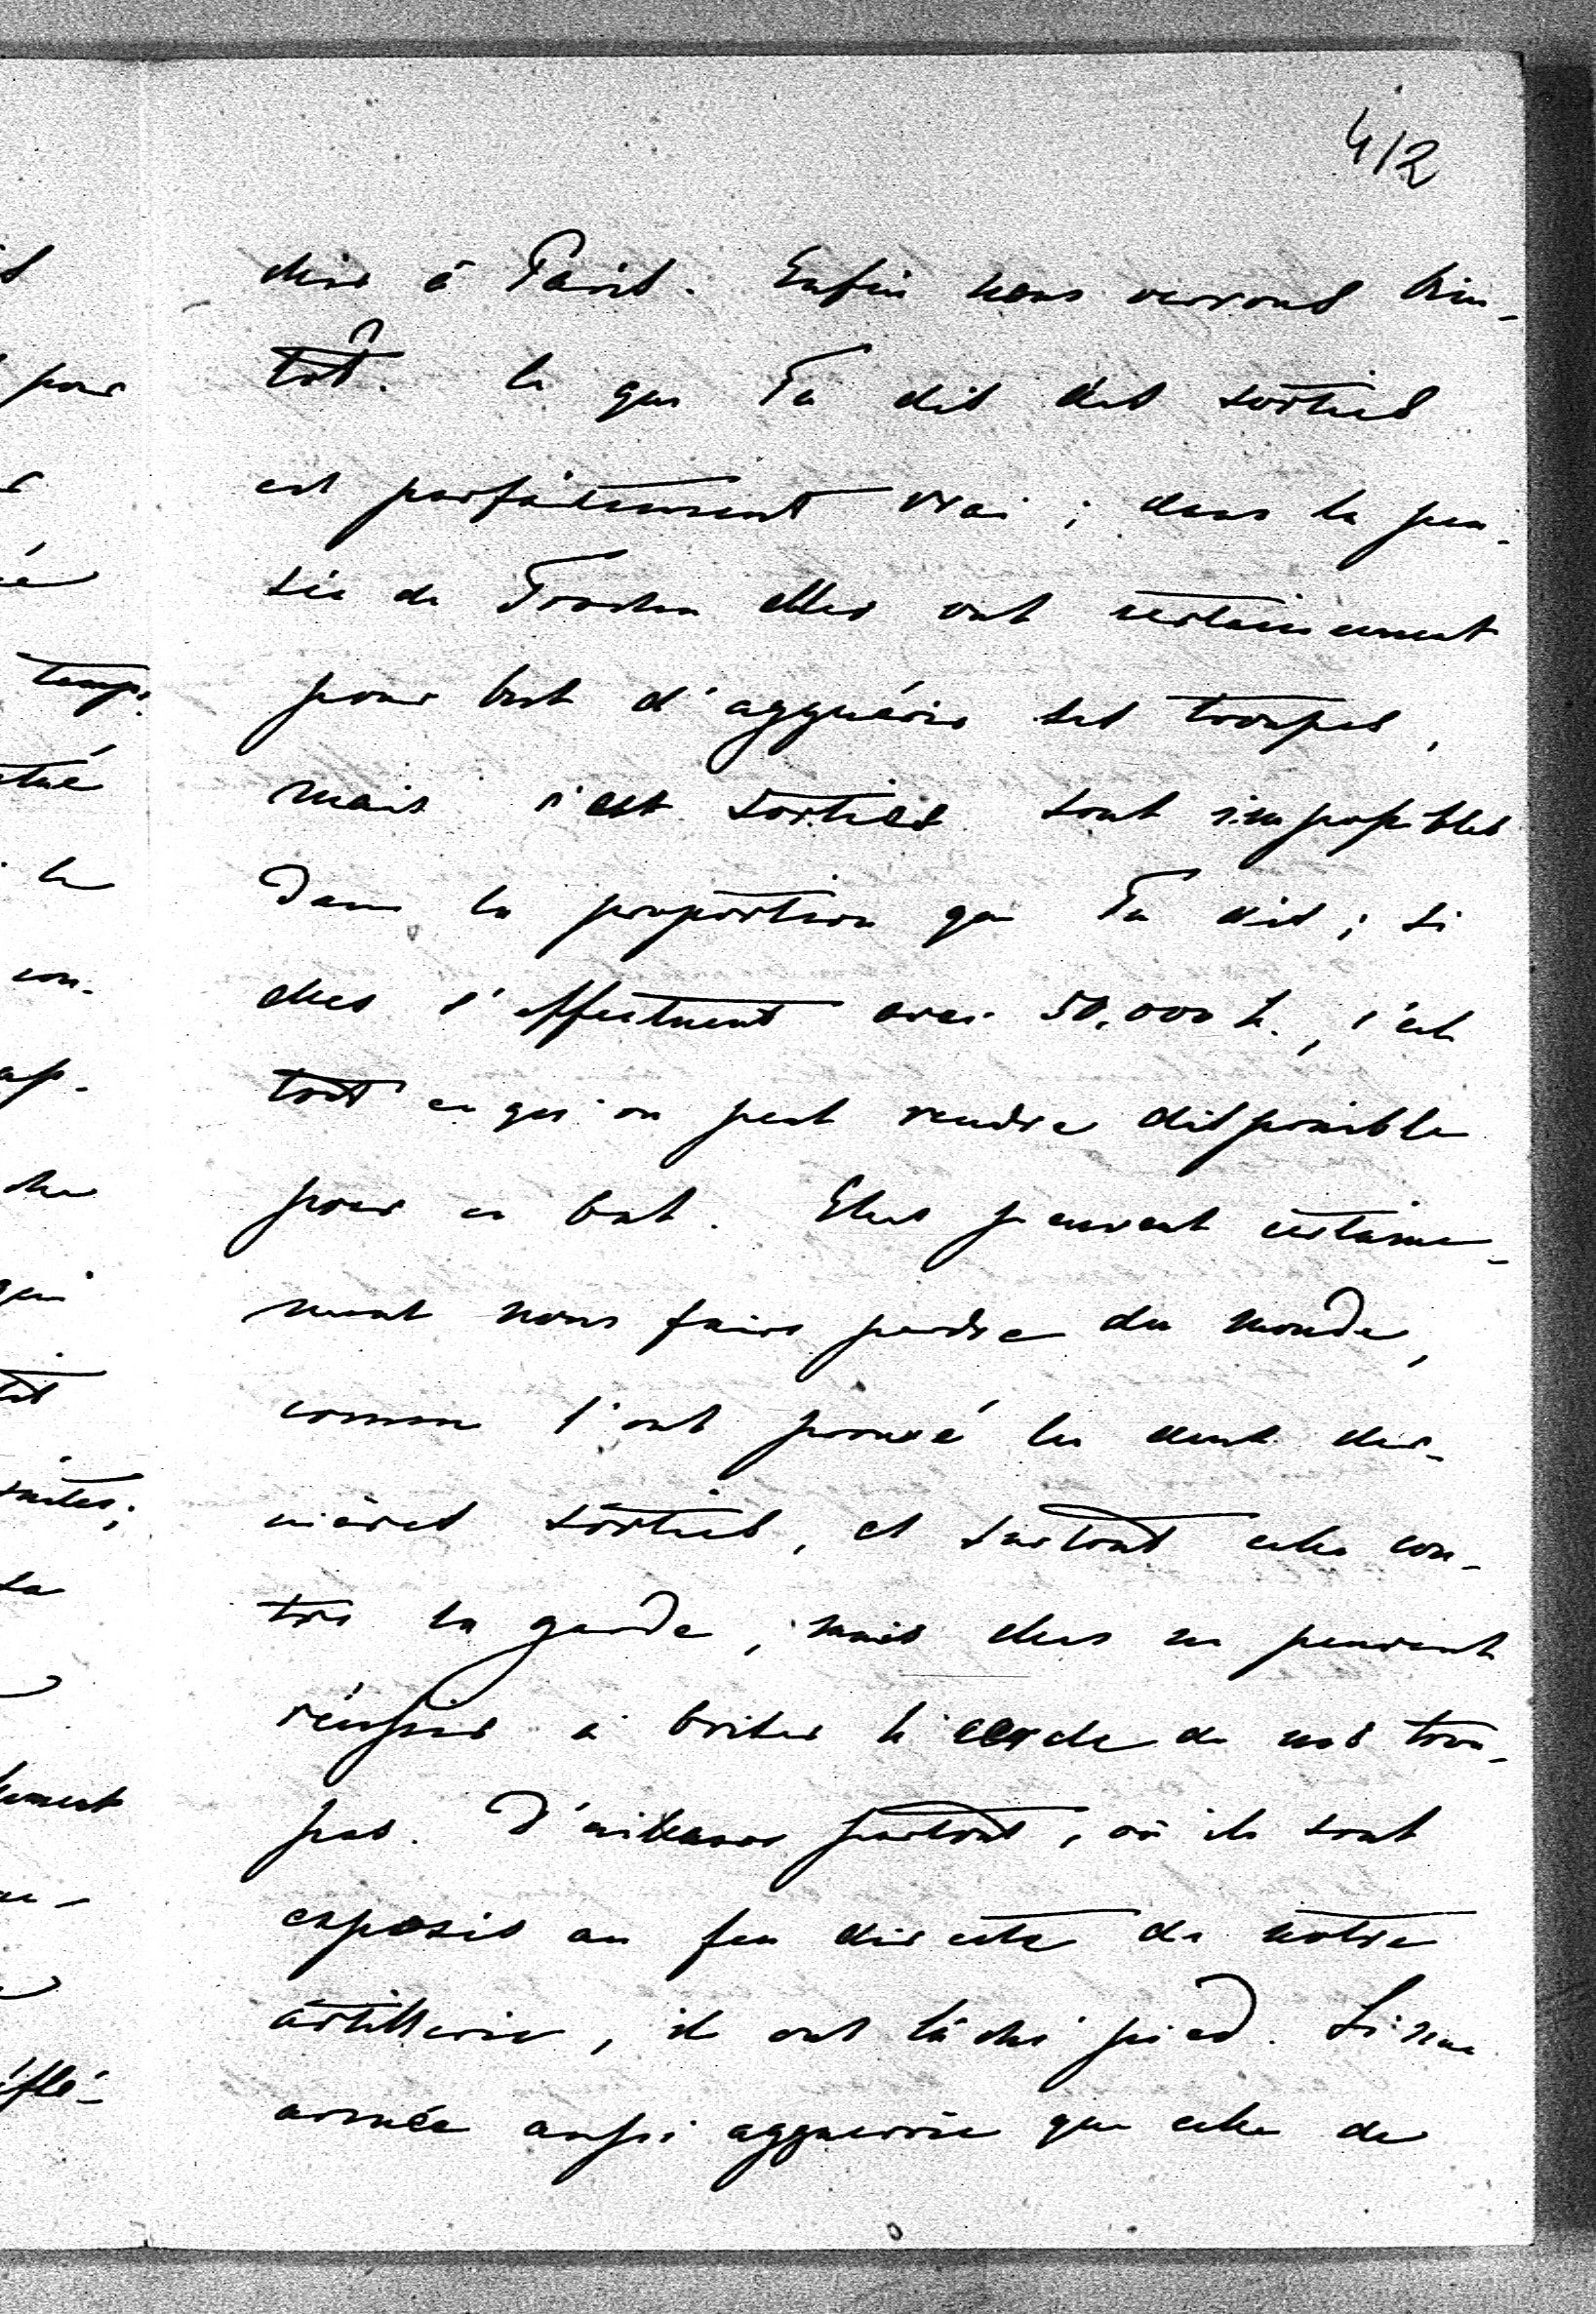 4/2
chir à Paris. Enfin nous verrons bien-
tôt. Ce que Tu dis des sorties
est parfaitement vrai ; dans la pen-
sée de Trochu elles ont certainement
pour but d'agguérir ses troupes,
mais c'est sorties sont impossibles
dans la proportion que Tu dis ; si
elles s'effectuent avec 50,000 h., c'est
tout ce qu'on peut rendre disponible
pour ce but. Elles peuvent certaine-
ment nous faire perdre du monde,
comme l'ont prouvé les deux der-
nières sorties, et surtout celle con-
tre la garde, mais elles ne peuvent
réussir à briser le cercle de nos trou-
pes. D'ailleurs partout, où ils sont
exposés au feu directe de notre
artillerie, ils ont lâché pied. Si une
armée aussi agguerrie que celle de
pour
temps.
la
con-
qui